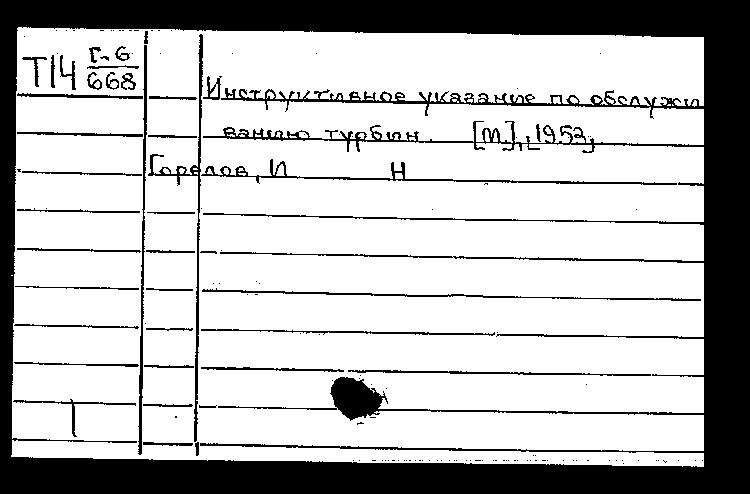 Т14 Г-6
668
Инструктивное указание по обслужи
ванию турбин. [М], 1952,
Горелов, И Н
1